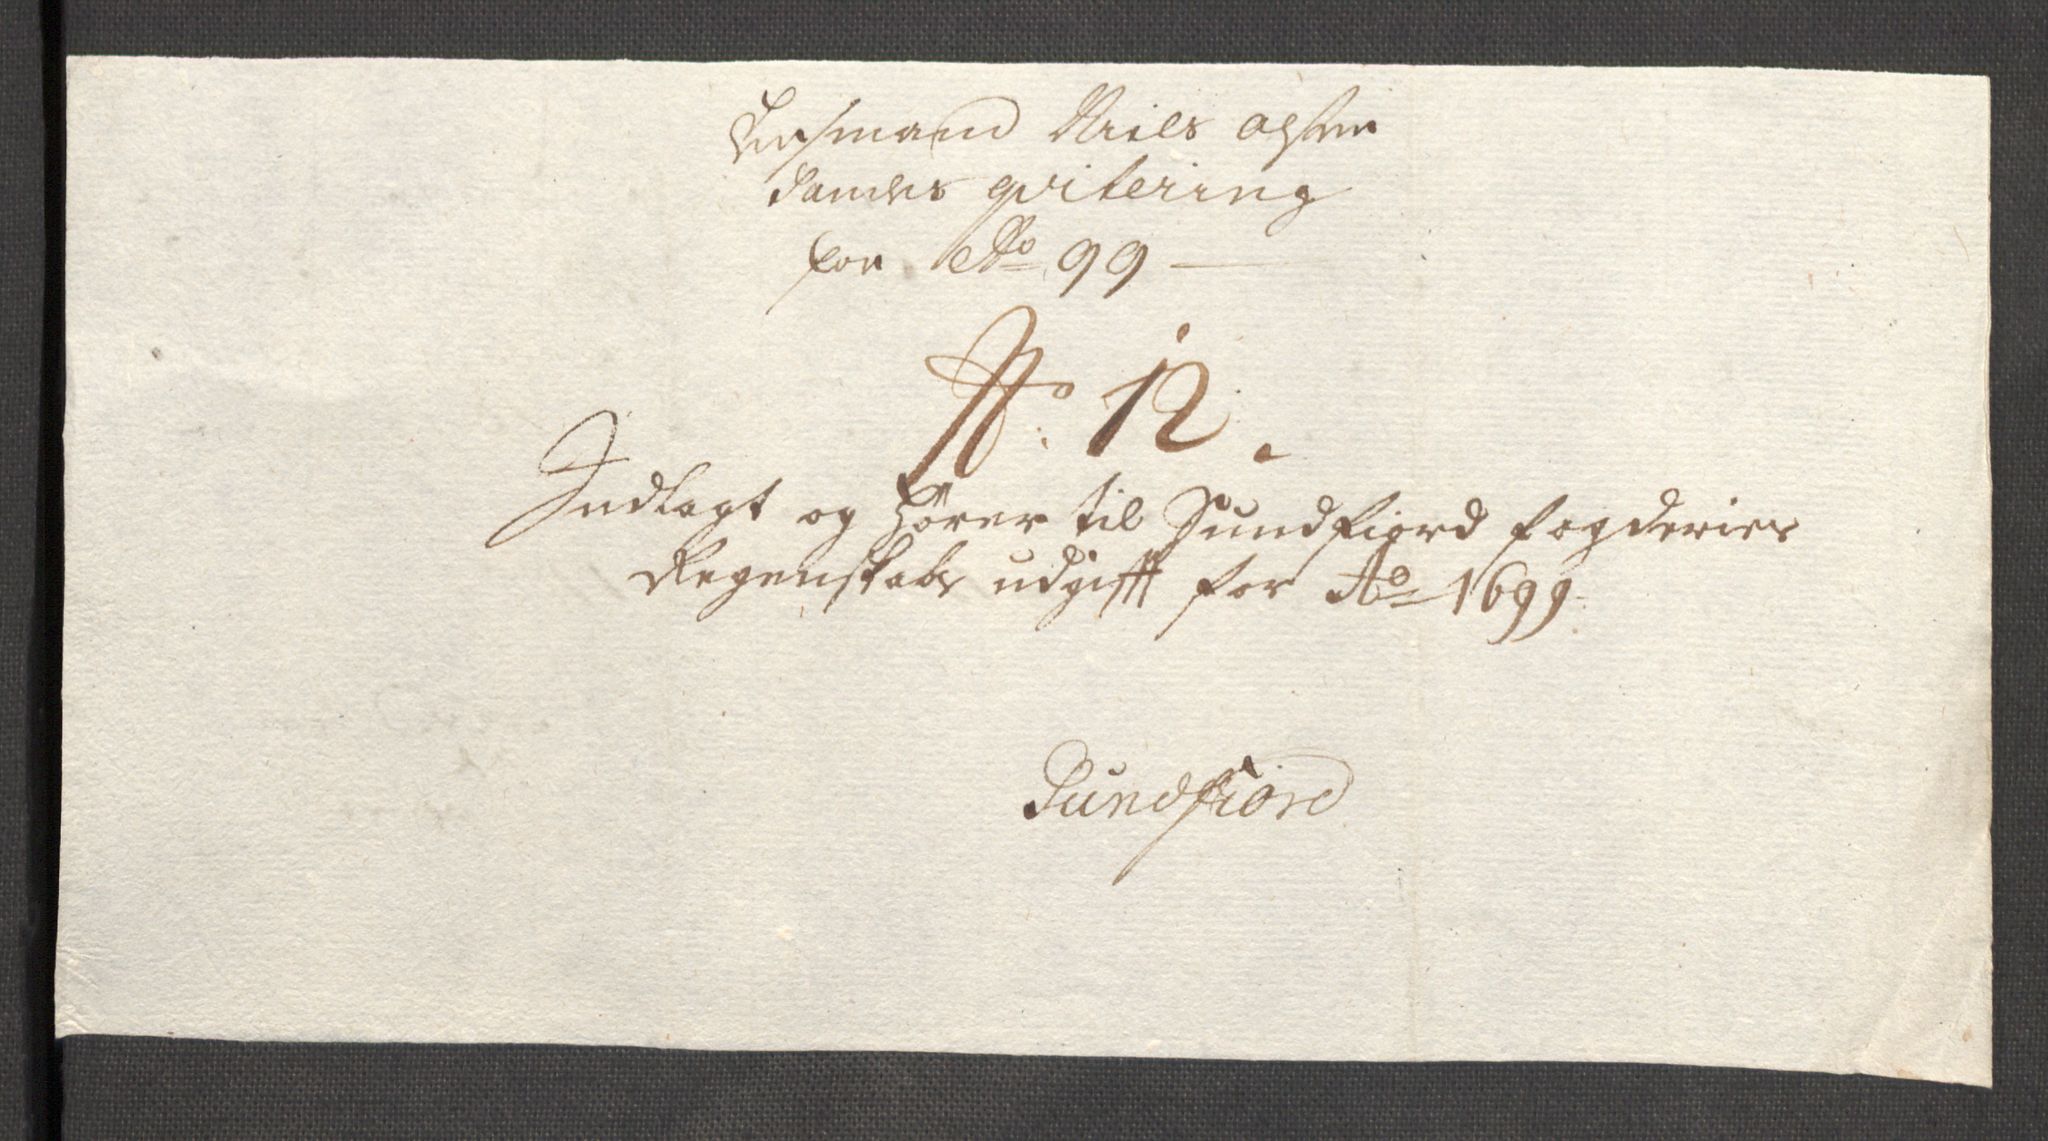 Lensmand Niels
qvitering
for Ao 99
No 12.
Indlagt og hører til Sundfiord fogderies
Regenskabs udgifft for Ao 1699
Sundfiord